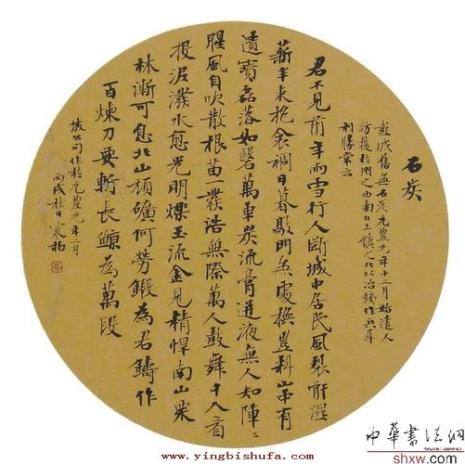 石炭
彭城舊無石炭元豐元年十二月始遣人
訪獲於州之西南白土鎮之北以冶鐵作兵犀
利勝常云
君不見前年雨雪行人斷城中居民風裂骭濕
薪半束抱衾裯日暮敲門無處換豈料山中有
遺寶磊落如磐萬車炭流膏迸液無人知陣〻
腥風自吹散根苗一發浩無際萬人鼓舞千人看
投泥潑水愈光明爍玉流金見精悍南山栗
林漸可息北山頑礦何勞鍛為君鑄作
百煉刀要斬長鯨為萬段
坡公 作於元豐元年 月
丙戌秋日寒柏
中華書法網
shxw.com
www.yingbishufa.com